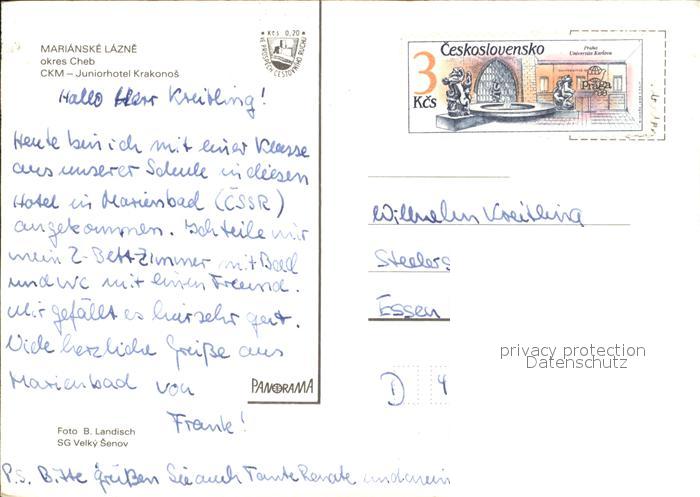 MARIÁNSKÉ LÁZNĚ
okres Cheb
CKM – Juniorhotel Krakonoš
Hallo Herr Kreitling!
Heute bin ich mit einer Klasse
aus unserer Schule in diesen
Hotel in Marienbad (ČSSR)
angekommen. Ich teile mir
mein 2-Bettzimmer mit Bad
und WC mit einen Freund.
Mir gefällt es hier sehr gut.
Viele herzliche Grüße aus
Marienbad von
Frank!
Foto B. Landisch
SG Velký Šenov
P.S. Bitte grüßen Sie auch Tante Renate und mein
PANORAMA
Kčs 0,20
VE PROSPĚCH CESTOVNÍHO RUCHU
Československo
3
Kčs
Praha
Univerzita Karlova
Praga
Wilhelm Kreitling
Steelers
Essen
D 4
privacy protection
Datenschutz